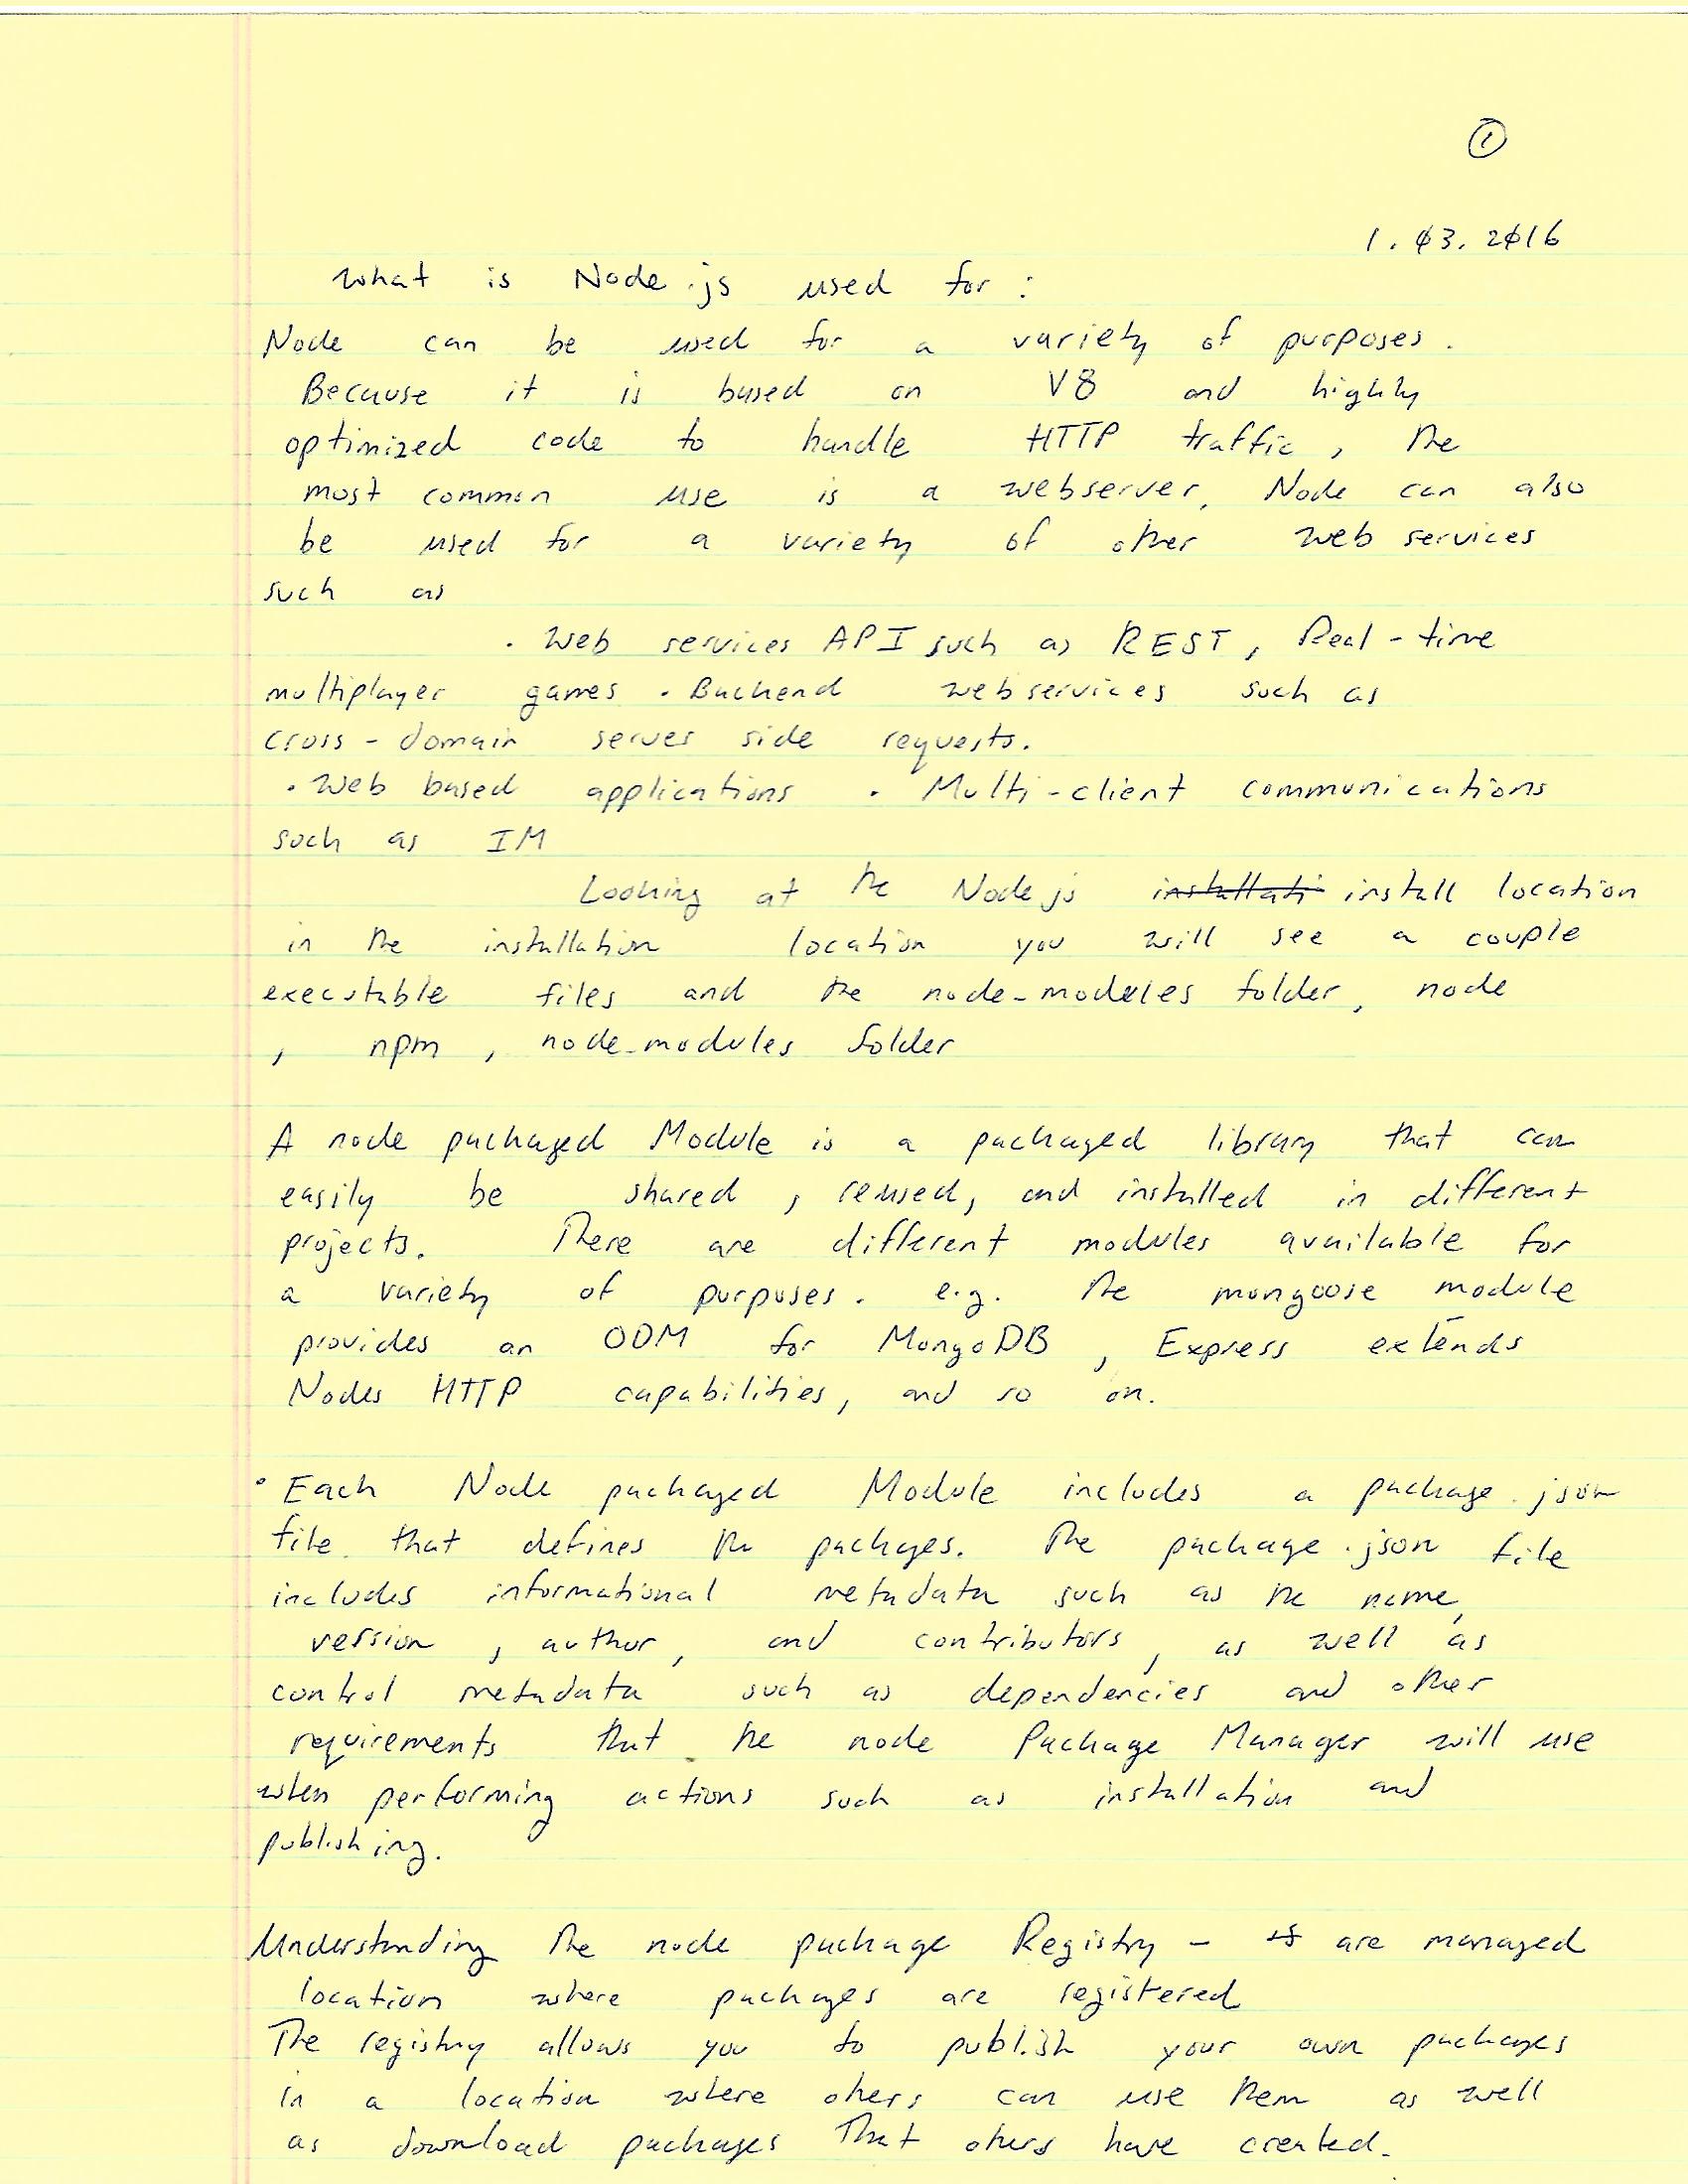 ①
1.03.2016
What is Node.js used for:
Node can be used for a variety of purposes.
Because it is based on V8 and highly
optimized code to handle HTTP traffic, the
most common use is a webserver. Node can also
be used for a variety of other web services
such as
· Web services API such as REST, Real-time
multiplayer games · Backend webservices such as
cross-domain server side requests.
· Web based applications · Multi-client communications
such as IM
Looking at the Node js installati install location
in the installation location you will see a couple
executable files and the node_modules folder, node
, npm, node_modules folder
A node packaged Module is a packaged library that can
easily be shared, reused, and installed in different
projects. There are different modules available for
a variety of purposes. e.g. the mongoose module
provides an ODM for MongoDB, Express extends
Nodes HTTP capabilities, and so on.
· Each Node packaged Module includes a package.json
file that defines the packages. The package.json file
includes informational metadata such as the name,
version, author, and contributors, as well as
control metadata such as dependencies and other
requirements that the node Package Manager will use
when performing actions such as installation and
publishing.
Understanding the node package Registry - are managed
location where packages are registered
The registry allows you to publish your own packages
in a location where ohers can use them as well
as download packages that ohers have created.